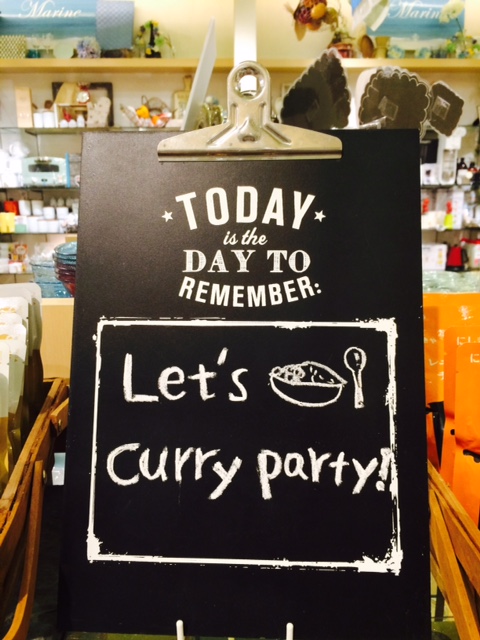 Marine
Marine
★ TODAY ★
is the
DAY TO
REMEMBER:
Let's
Curry party!